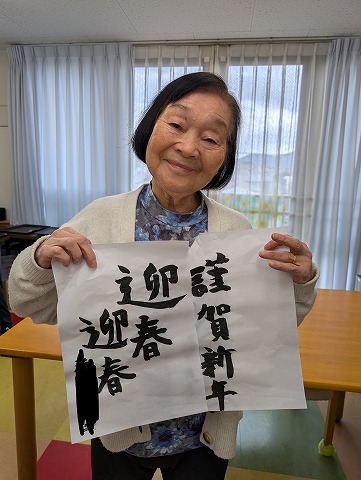 謹賀新年
迎春
迎春